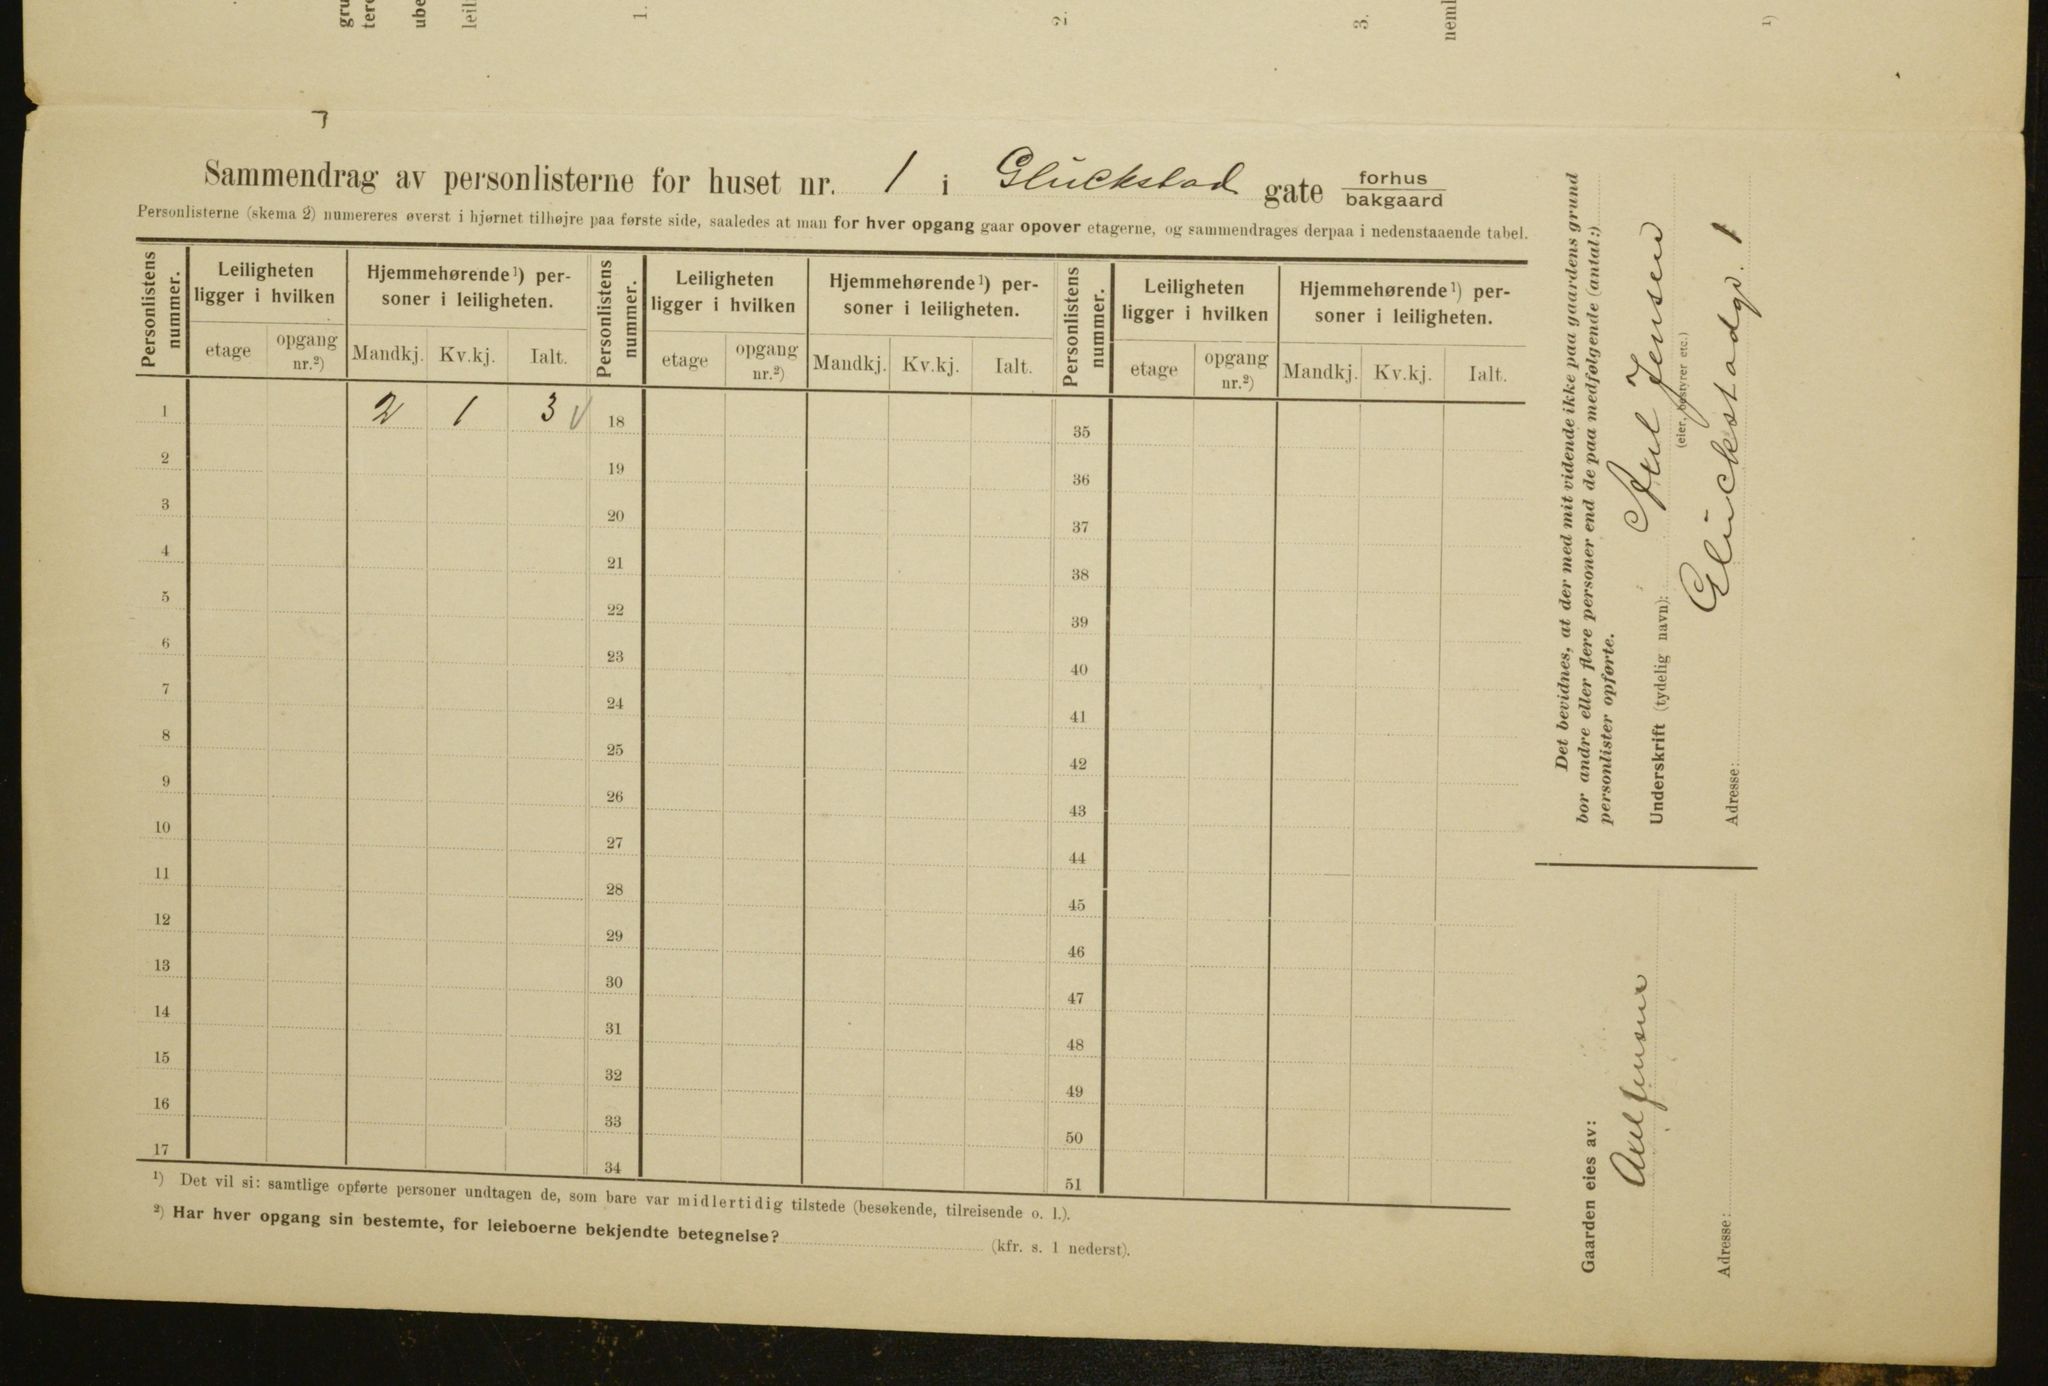 Sammendrag av personlisterne for huset nr. 1 i Glückstad gate forhus bakgaard
Personlisterne (skema 2) numereres øverst i hjørnet tilhøjre paa første side, saaledes at man for hver opgang gaar opover etagerne, og sammendrages derpaa i nedenstaaende tabel.
Personlistens nummer. Leiligheten ligger i hvilken Hjemmehørende¹) personer i leiligheten. Personlistens nummer. Leiligheten ligger i hvilken Hjemmehørende¹) personer i leiligheten. Personlistens nummer. Leiligheten ligger i hvilken Hjemmehørende¹) personer i leiligheten.
etage opgang nr.²) Mandkj. Kv.kj. Ialt. etage opgang nr.²) Mandkj. Kv.kj. Ialt. etage opgang nr.²) Mandkj. Kv.kj. Ialt.
1 2 1 3 18 35
2 19 36
3 20 37
4 21 38
5 22 39
6 23 40
7 24 41
8 25 42
9 26 43
10 27 44
11 28 45
12 29 46
13 30 47
14 31 48
15 32 49
16 33 50
17 34 51
¹) Det vil si: samtlige opførte personer undtagen de, som bare var midlertidig tilstede (besøkende, tilreisende o. l.).
²) Har hver opgang sin bestemte, for leieboerne bekjendte betegnelse? (kfr. s. 1 nederst).
Det bevidnes, at der med mit vidende ikke paa gaardens grund
bor andre eller flere personer end de paa medfølgende (antal:)
personlister opførte.
Underskrift (tydelig navn): Axel Jensen
(eier, bestyrer etc.)
Adresse: Glückstadgd. 1
Gaarden eies av:
Axel Jensen
Adresse:
gru
tere
ube
leil
1.
2.
3.
neml
¹)